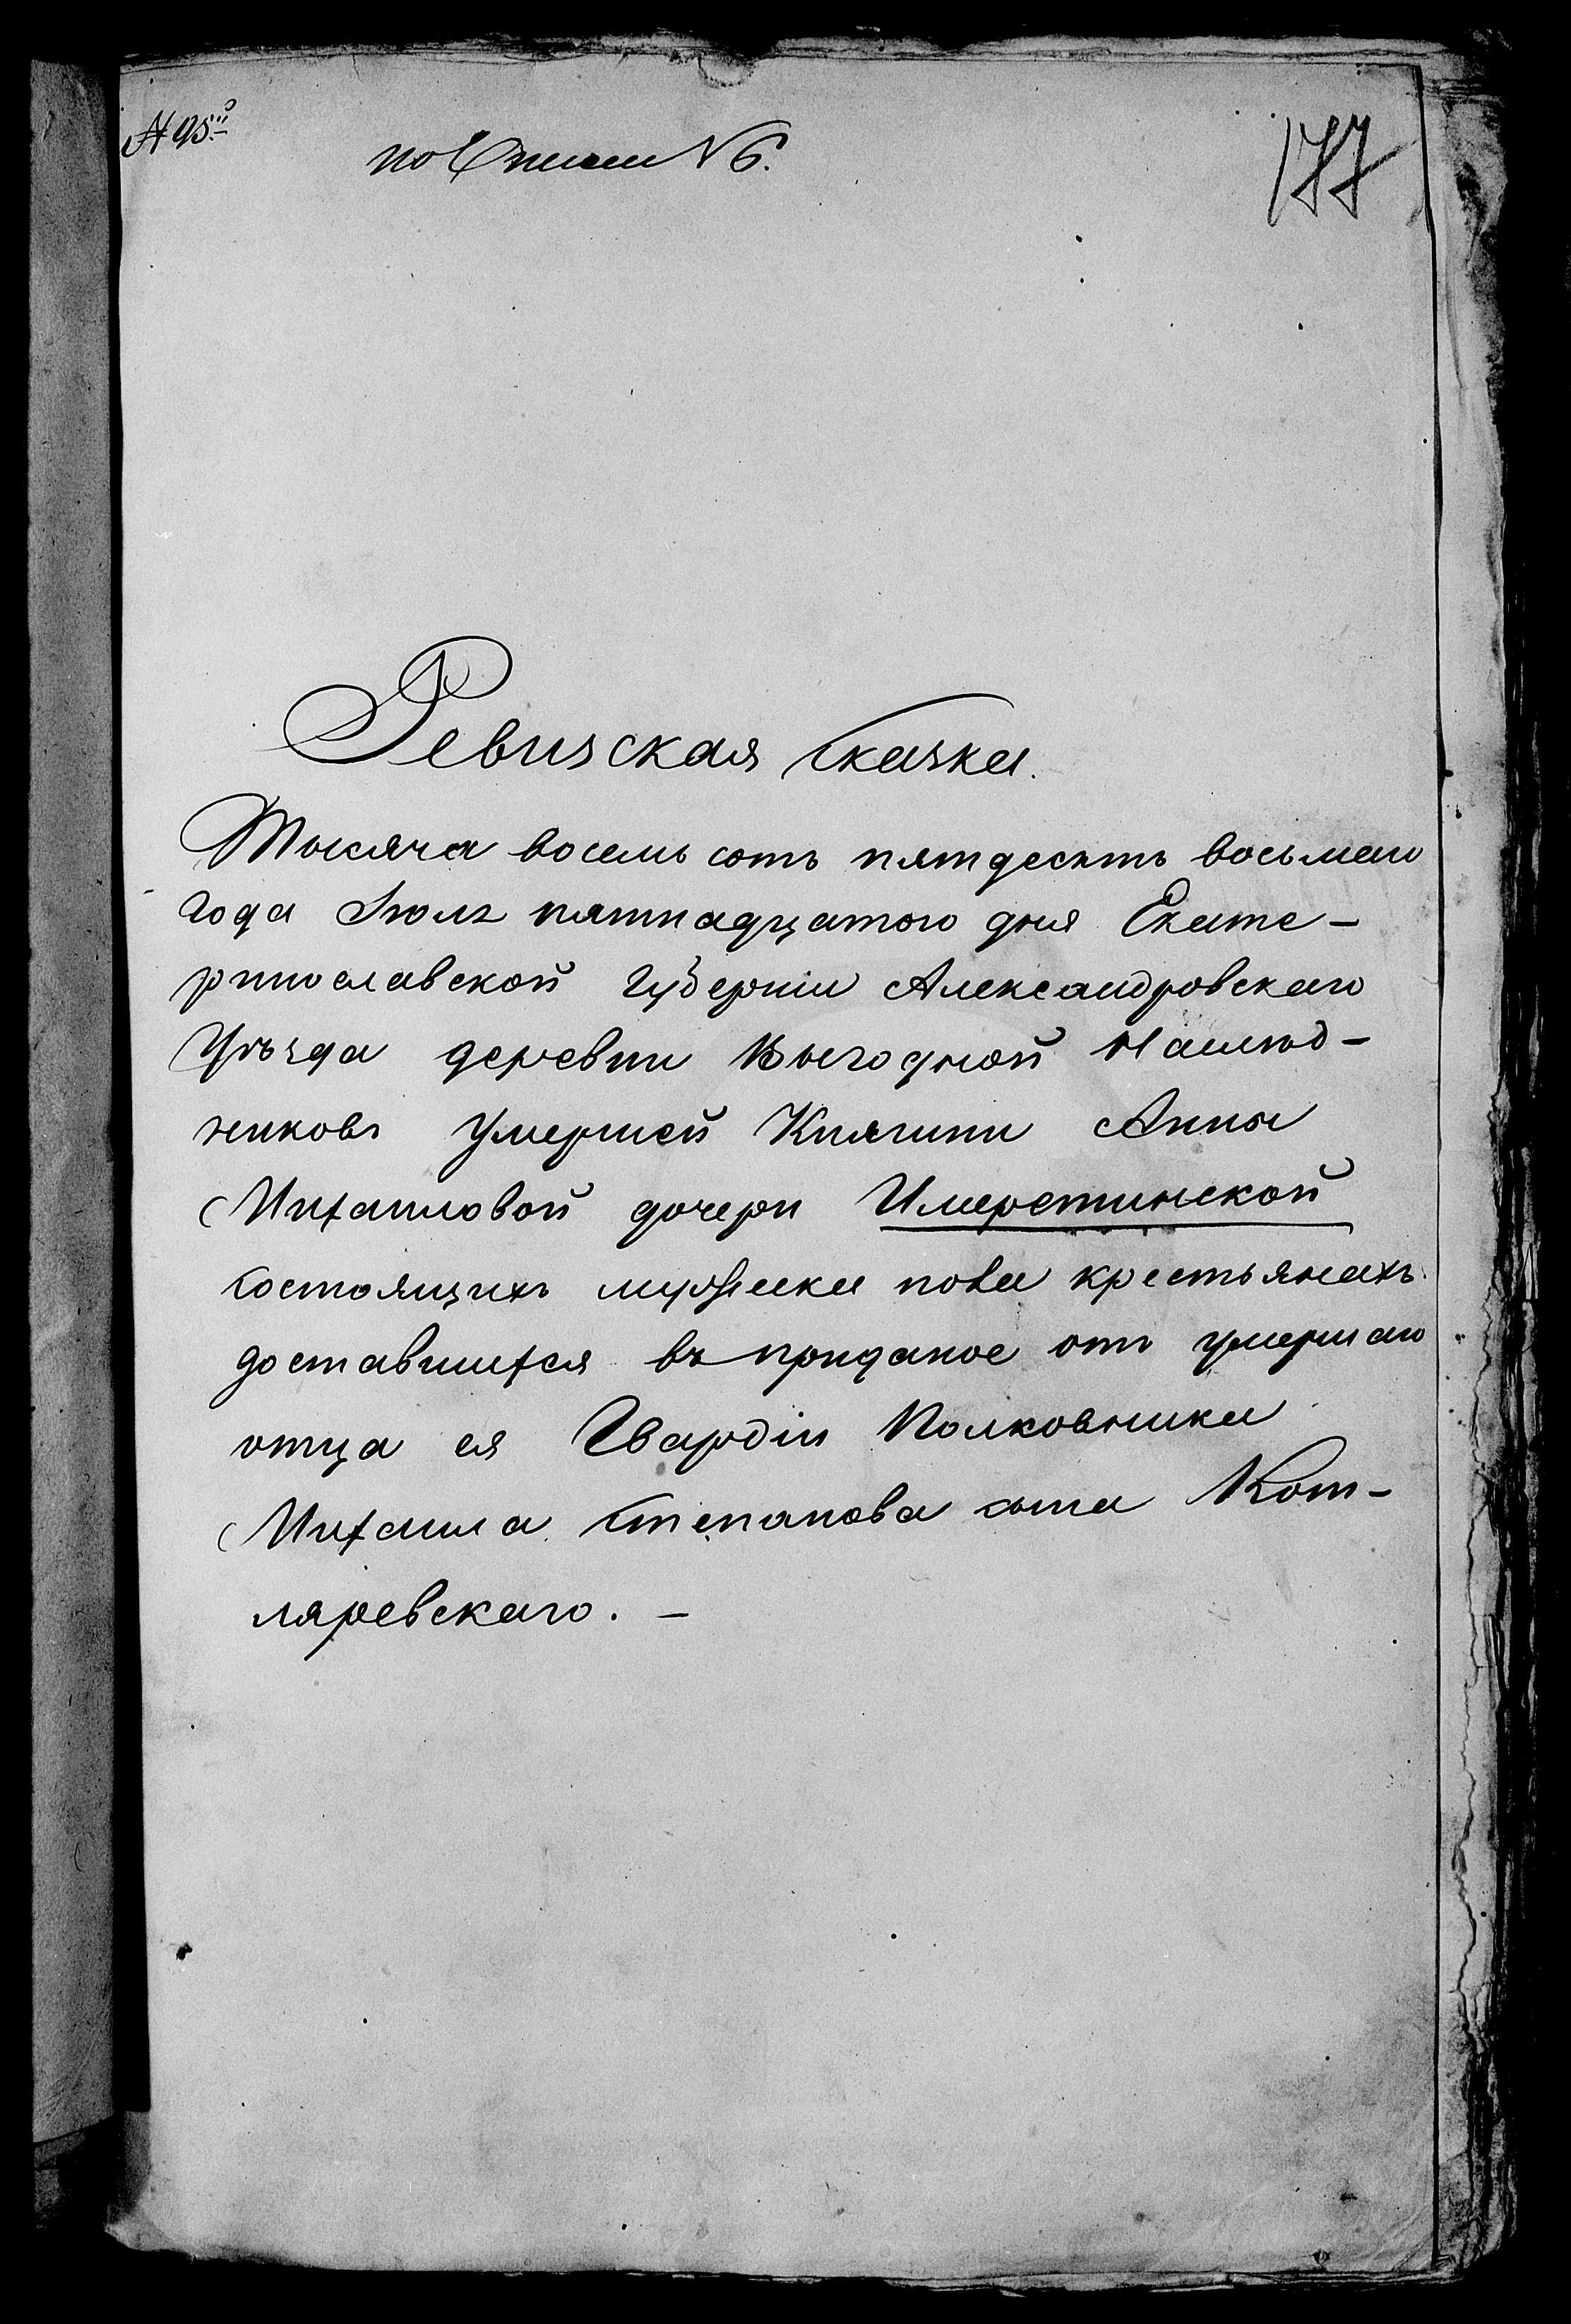 № 95й
по Описи № 6.
177
Ревизская Сказка.
Тысяча восемь сотъ пятдесятъ восьмаго
года Іюля пятнадцатого дня Екате-
ринославской Губерніи Александровскаго
Уѣзда деревни Выгодной Наслѣд-
никовъ умершей Княгини Анны
Михаиловой дочери Имеретинской
состоящихъ мужеска пола крестьянахъ
доставшихся въ приданое отъ умершаго
отца ея Гвардіи Полковника
Михаила Степанова сына Кот-
ляревскаго. —